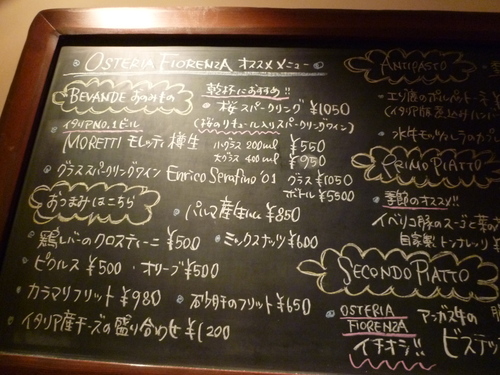 OSTERIA FIORENZA オススメメニュー
BEVANDE おのみもの
乾杯におすすめ!!
桜スパークリング ¥1050
(桜のリキュール入りスパークリングワイン)
イタリアNO.1ビール
MORETTI モレッティ樽生 小グラス 200ml ¥550
大グラス 400ml ¥950
グラススパークリングワイン Enrico Serafino '01 グラス ¥1050
ボトル ¥5500
おつまみはこちら
パルマ産生ハム ¥850
鶏レバーのクロスティーニ ¥500
ミックスナッツ ¥600
ピクルス ¥500・オリーブ ¥500
カラマリフリット ¥980
砂肝のフリット ¥650
イタリア産チーズの盛り合わせ ¥1200
ANTIPASTO
エゾ鹿のポルペットーネ
(イタリア風煮込みハン
水牛モッツァレラのカプ
PRIMO PIATTO
季節のオススメ!!
イベリコ豚のスーゴと菜の
自家製トンナレリ
SECONDO PIATTO
OSTERIA
FIORENZA
イチオシ!!
アンガス牛の
ビステッ